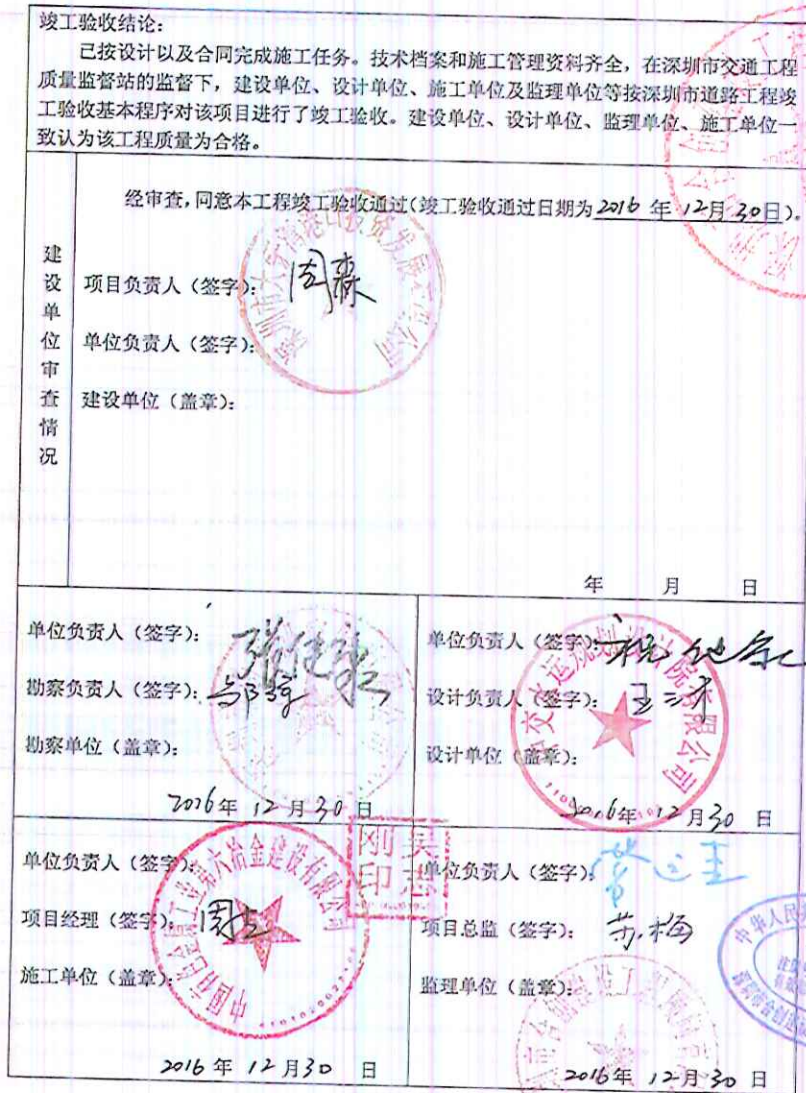 竣工验收结论:
已按设计以及合同完成施工任务。技术档案和施工管理资料齐全，在深圳市交通工程
质量监督站的监督下，建设单位、设计单位、施工单位及监理单位等按深圳市道路工程竣
工验收基本程序对该项目进行了竣工验收。建设单位、设计单位、监理单位、施工单位一
致认为该工程质量为合格。
建设单位审查情况
经审查,同意本工程竣工验收通过(竣工验收通过日期为2016 年 12月30日)。
项目负责人（签字）: 周森
单位负责人（签字）:
建设单位（盖章）:
年 月 日
单位负责人（签字）:
勘察负责人（签字）:
勘察单位（盖章）:
2016年 12月30 日
单位负责人（签字）:
设计负责人（签字）:
设计单位（盖章）:
中交水运规划设计院有限公司
2016年 12月30 日
单位负责人（签字）:
项目经理（签字）:
施工单位（盖章）:
中国有色金属工业第六冶金建设有限公司
2016年 12月30 日
单位负责人（签字）:
项目总监（签字）:
监理单位（盖章）:
2016年 12月30 日